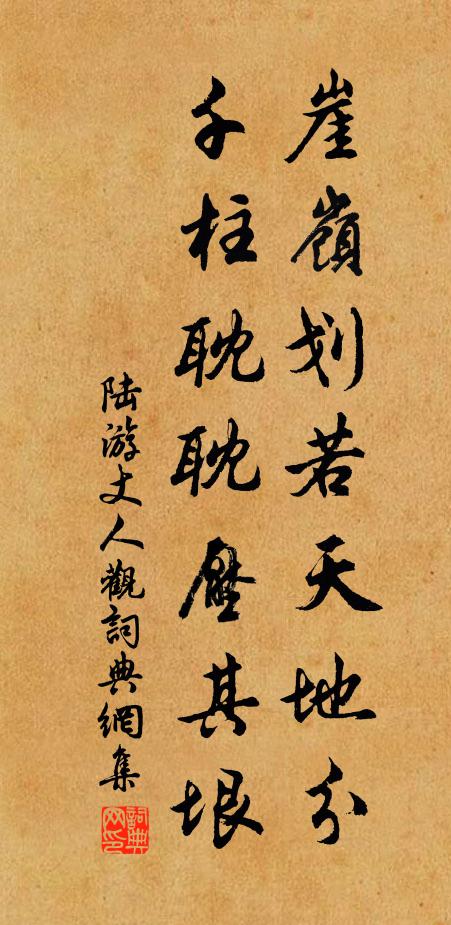 崖嶺划若天地分
千柱耽耽壓其垠
陆游丈人觀詞典網集
詞典網印